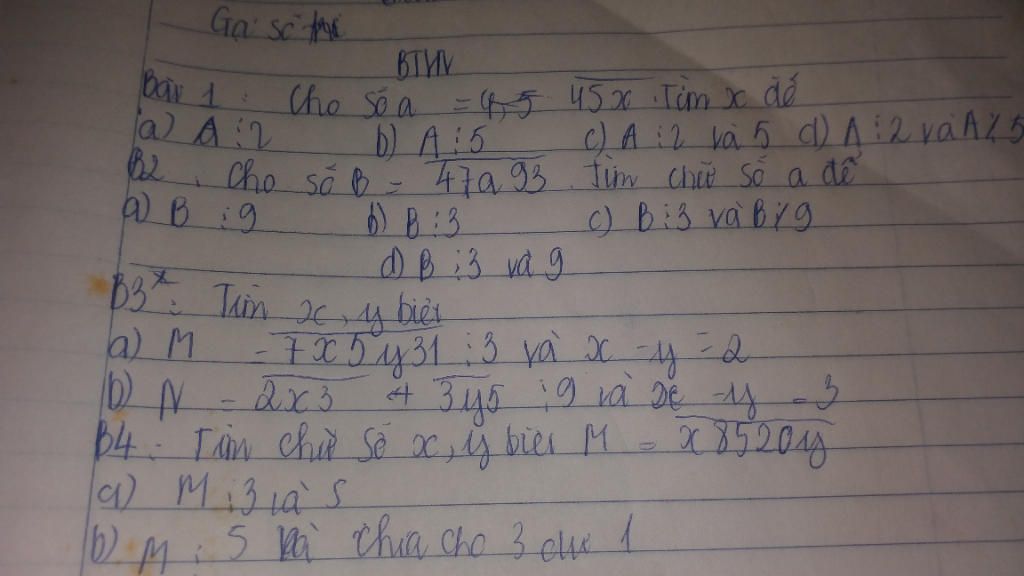 Gọi số
BTVN
Bài 1: Cho số a = 45x. Tìm x để
a) A ⋮ 2 b) A ⋮ 5 c) A ⋮ 2 và 5 d) A ⋮ 2 và A ⋮̸ 5
B2. Cho số B = 47a93. Tìm chữ số a để
a) B ⋮ 9 b) B ⋮ 3 c) B ⋮ 3 và B ⋮̸ 9
d) B ⋮ 3 và 9
B3*: Tìm x, y biết
a) M = 7x5y31 ⋮ 3 và x - y = 2
b) N = 2x3 + 3y5 ⋮ 9 và x - y = 3
B4: Tìm chữ số x, y biết M = x8520y
a) M ⋮ 3 và 5
b) M ⋮ 5 và chia cho 3 dư 1